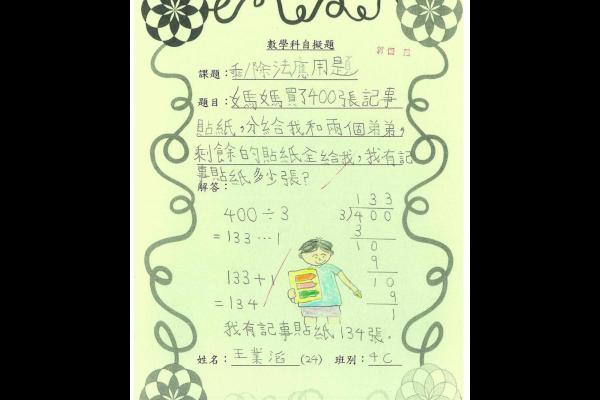 數學科自擬題
課題：乘/除法應用題
題目：媽媽買了400張記事
貼紙，分給我和兩個弟弟，
剩餘的貼紙全給我，我有記
事貼紙多少張？
解答：
400÷3
=133…1
133+1
=134
133
3)400
3
10
9
10
9
1
我有記事貼紙134張。
姓名：王業滔(24) 班別：4C